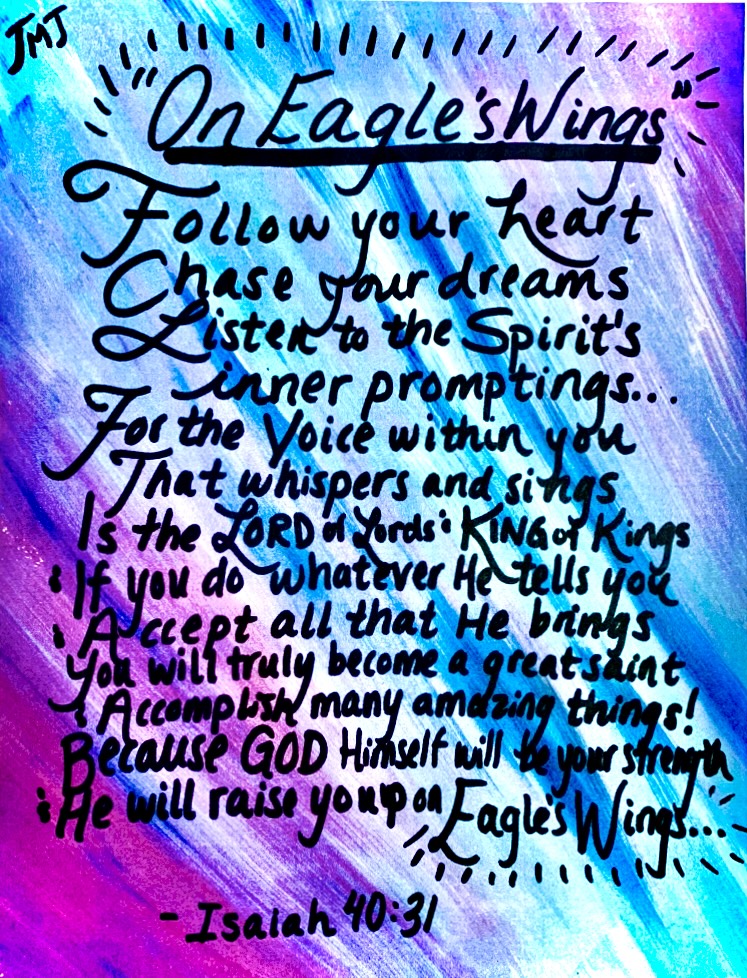 JMJ
"On Eagle's Wings"
Follow your heart
Chase your dreams
Listen to the Spirit's
inner promptings...
For the Voice within you
That whispers and sings
Is the LORD of Lords & KING of Kings
& If you do whatever He tells you
& Accept all that He brings
You will truly become a great saint
& Accomplish many amazing things!
Because GOD Himself will be your strength
& He will raise you up on Eagle's Wings...
- Isaiah 40:31